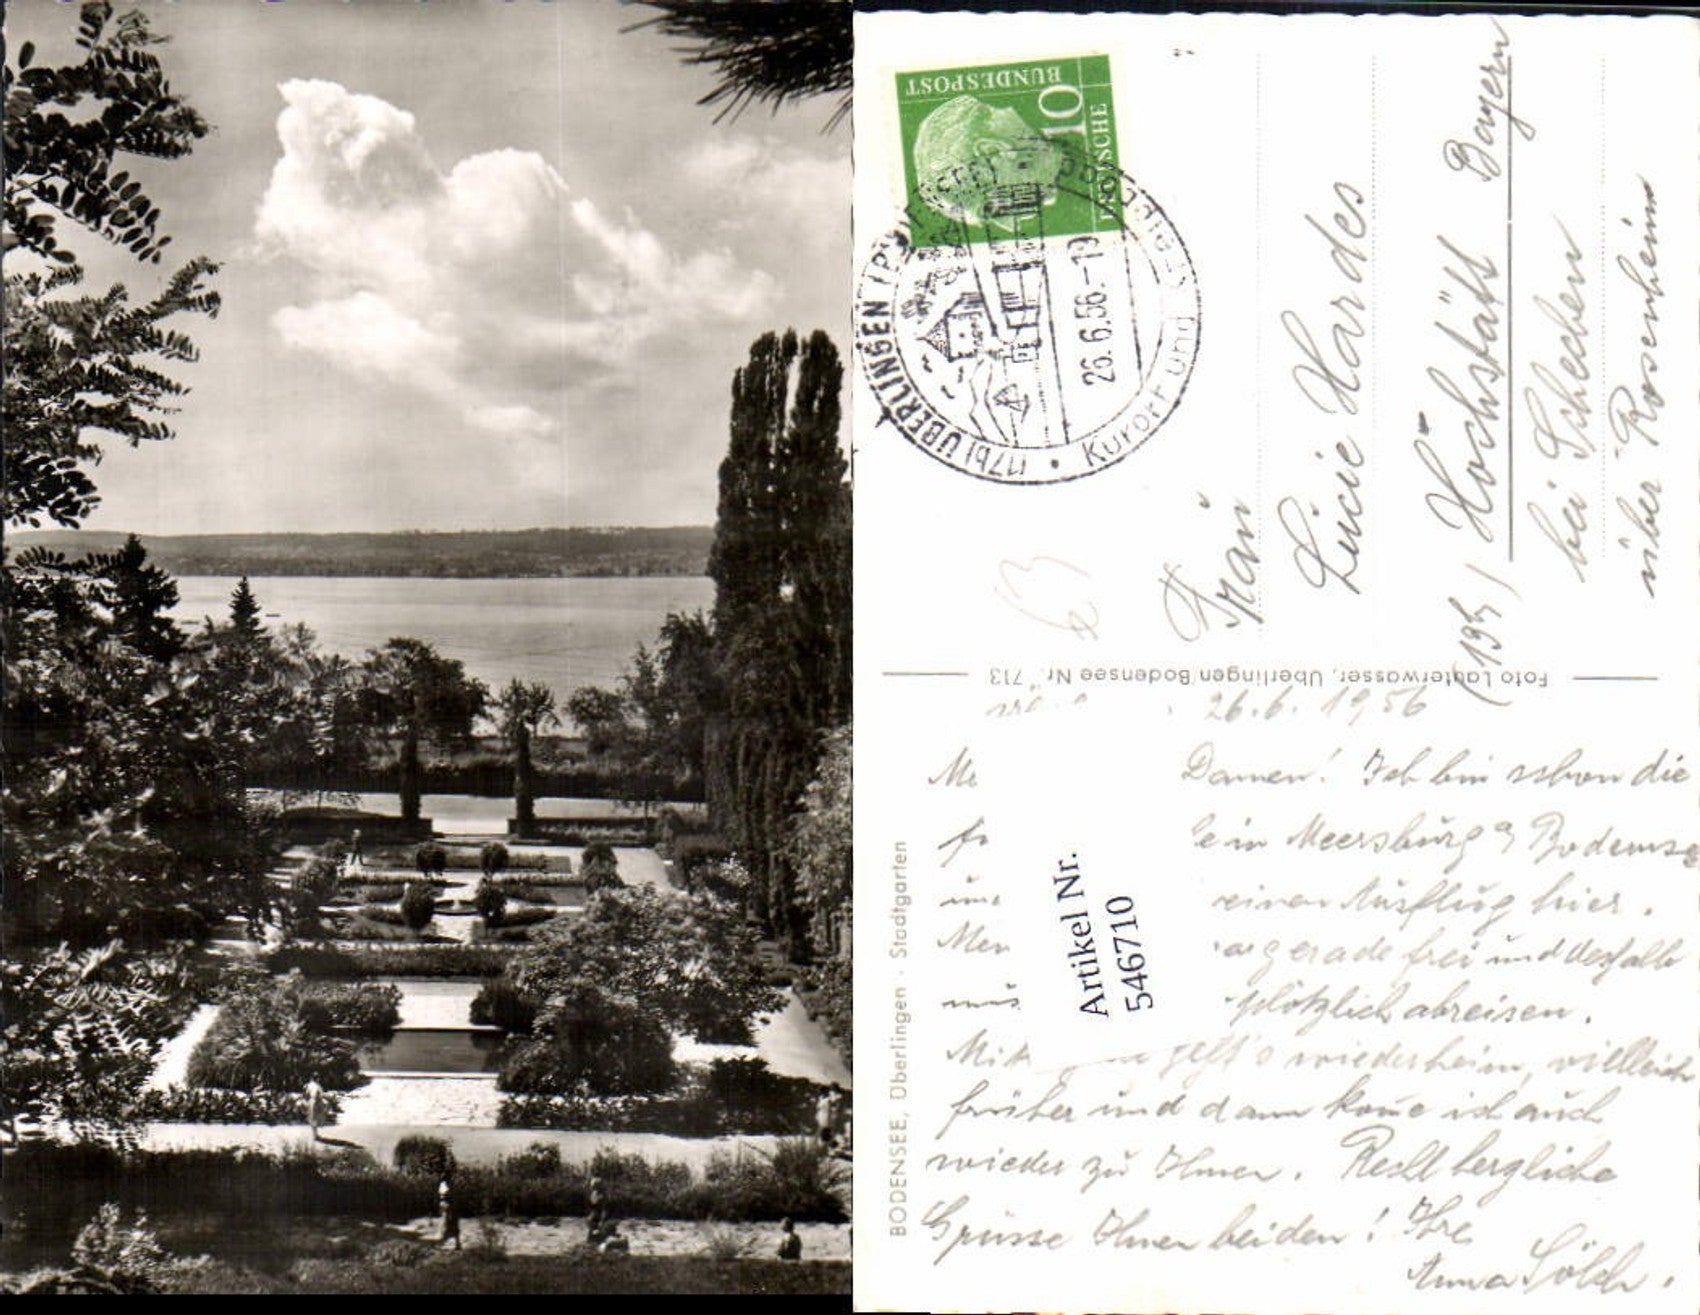 DEUTSCHE
BUNDESPOST
10
(17b) ÜBERLINGEN
26.6.56.-19
Kurort und
Frau
Lucie Hardes
(13b) Höchstätt Bayern
bei Schechen
über Rosenheim
Foto Lauterwasser, Überlingen Bodensee Nr. 713
BODENSEE, Überlingen · Stadtgarten
Artikel Nr.
546710
26.6.1956
Damen! Ich bin schon die
in Meersburg a/Bodensee
einen Ausflug hier.
gerade frei und deshalb
plötzlich abreisen.
geht's wiederheim, vielleich
früher und dann komme ich auch
wieder zu Ihnen. Recht herzliche
Grüsse Ihnen beiden! Ihre
Anna Sölch.